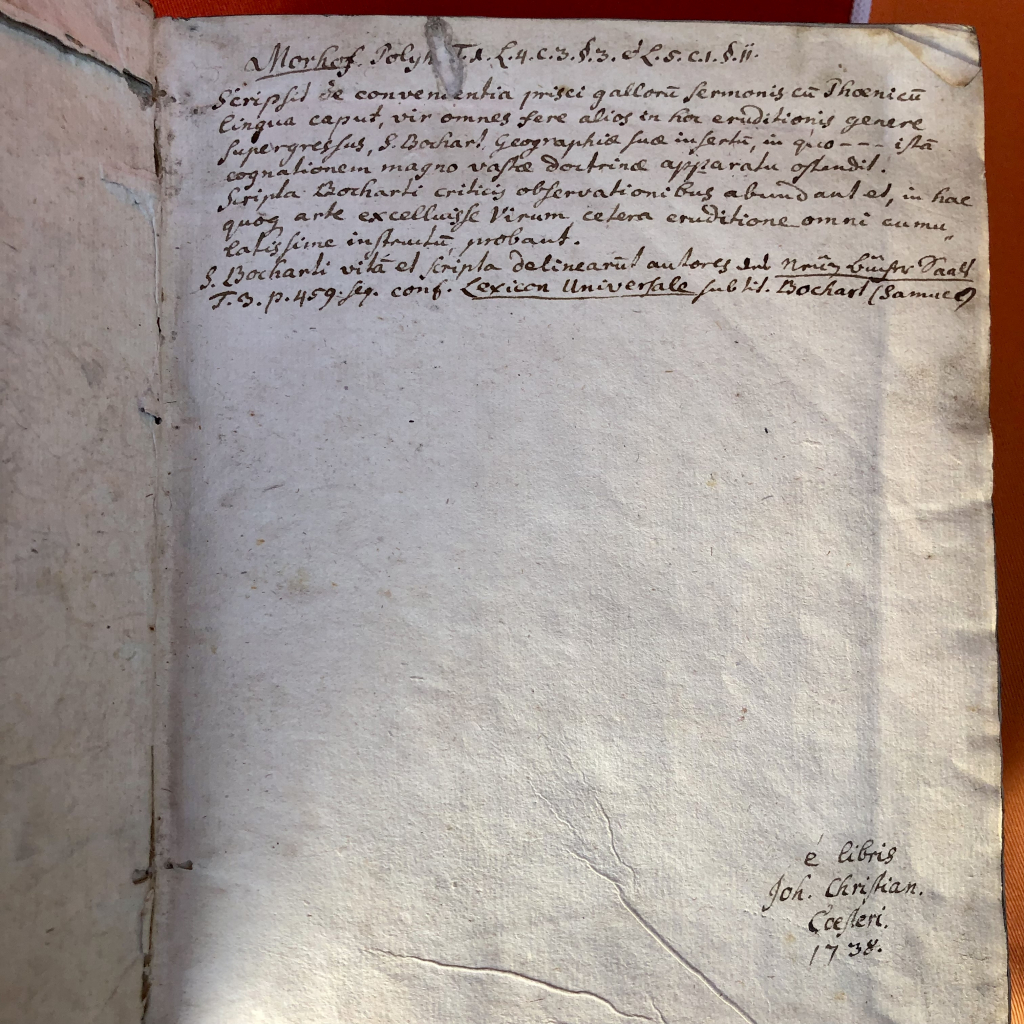 Morhof. Polyh T.1. L.4. c.3. §.3. et L.5. c.1. §.11.
Scripsit de convenientia prisci gallorū sermonis cū Phœnicū
lingua caput, vir omnes fere alios in hoc eruditionis genere
supergressus, S. Bochart. Geographiæ suæ insertū, in quo - - - istā
cognationem magno vastæ doctrinæ apparatu ostendit.
Scripta Bocharti criticis observationibus abundant et, in hac
quoq arte excelluisse Virum cetera eruditione omni cumu„
latissime instructū, probant.
S. Bocharti vitā et scripta delinearūt autores des Saals
T.3. p.459. seq. conf. Lexicon Universale sub tit. Bochart (Samuel)
é libris
Joh. Christian.
Coesteri.
1738.